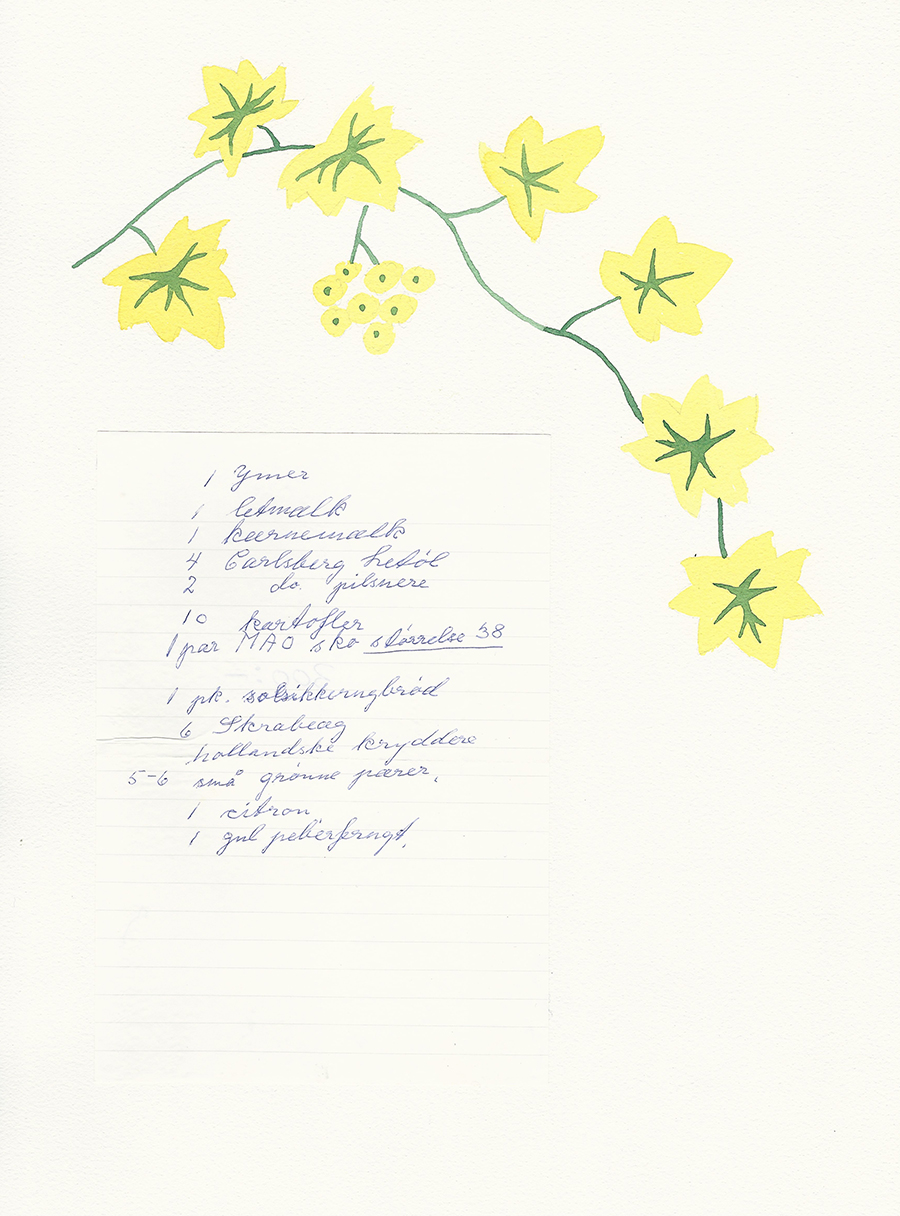 1 Ymer
1 letmælk
1 kærnemælk
4 Carlsberg hetöl
2 do. pilsnere
10 kartofler
1 par MAO sko størrelse 38
1 pk. solsikkerugbrød
6 Skrabeæg
hollandske kryddere
5-6 små grønne pærer,
1 citron
1 gul peberfrugt,